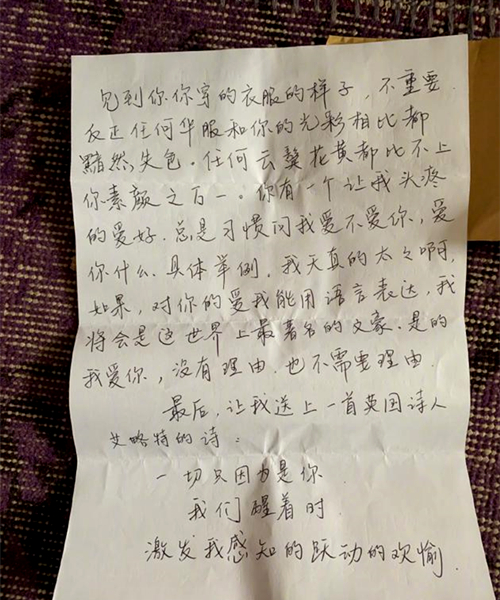 见到你你穿的衣服的样子,不重要
反正任何华服和你的光彩相比都
黯然失色。任何云鬓花黄都比不上
你素颜之百一。你有一个让我头疼
的爱好.总是习惯问我爱不爱你,爱
你什么.具体举例.我天真的太々啊,
如果,对你的爱我能用语言表达,我
将会是这世界上最著名的文豪.是的
我爱你,没有理由.也不需要理由.
最后,让我送上一首英国诗人
艾略特的诗:
一切只因为是你.
我们醒着时.
激发我感知的跃动的欢愉.